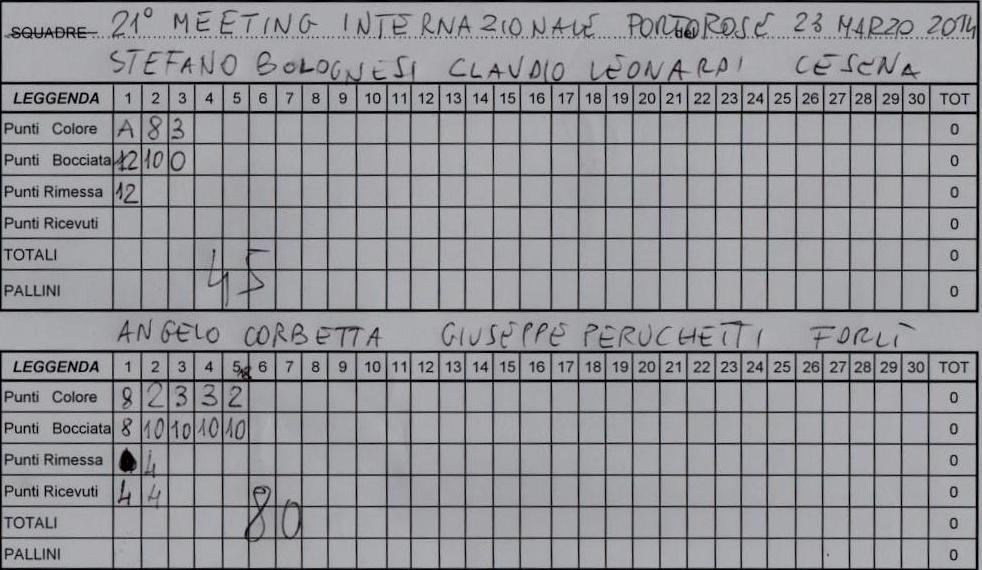 SQUADRE 21° MEETING INTERNAZIONALE PORTOROSE 23 MARZO 2014
STEFANO BOLOGNESI CLAUDIO LEONARDI CESENA
LEGGENDA 1 2 3 4 5 6 7 8 9 10 11 12 13 14 15 16 17 18 19 20 21 22 23 24 25 26 27 28 29 30 TOT
Punti Colore A 8 3 0
Punti Bocciata 12 10 0 0
Punti Rimessa 12 0
Punti Ricevuti 0
TOTALI 45 0
PALLINI 0
ANGELO CORBETTA GIUSEPPE PERUCHETTI FORLÌ
LEGGENDA 1 2 3 4 5 6 7 8 9 10 11 12 13 14 15 16 17 18 19 20 21 22 23 24 25 26 27 28 29 30 TOT
Punti Colore 8 2 3 3 2 0
Punti Bocciata 8 10 10 10 10 0
Punti Rimessa 4 0
Punti Ricevuti 4 4 0
TOTALI 80 0
PALLINI 0